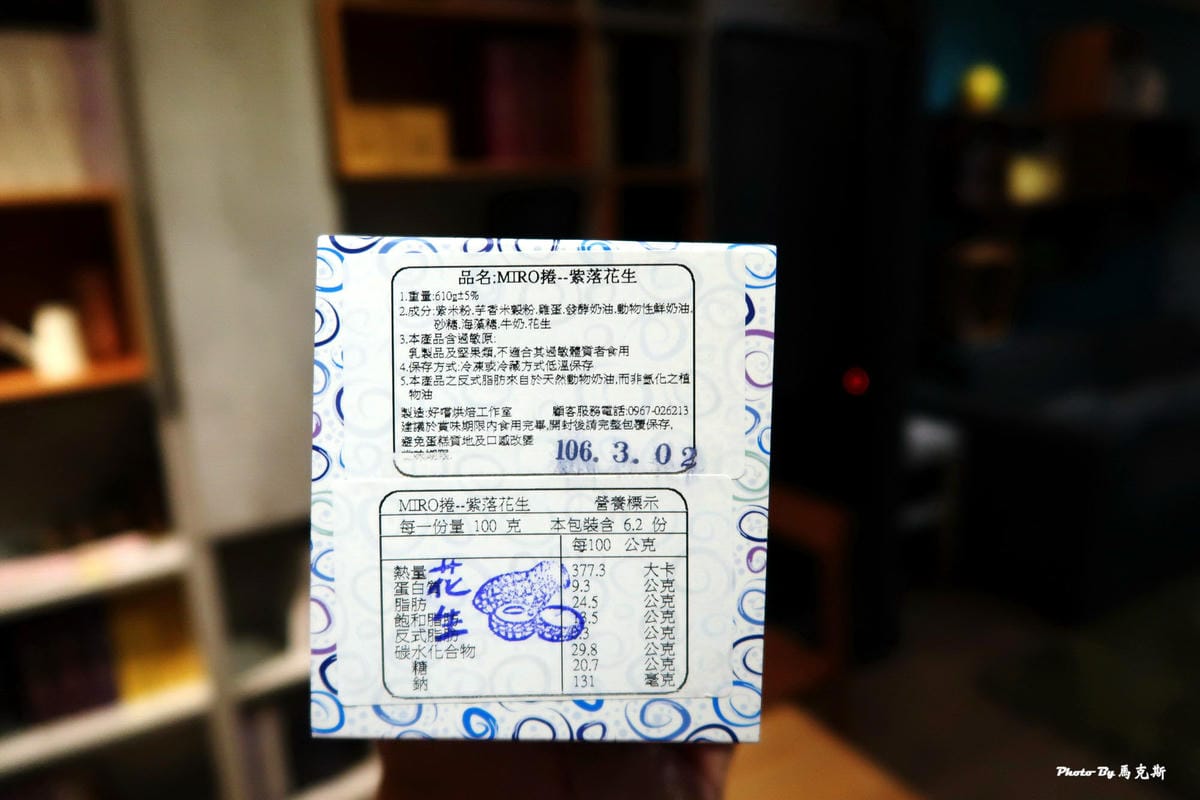 品名:MIRO捲--紫落花生
1.重量:610g±5%
2.成分:紫米粉.芋香米穀粉.雞蛋.發酵奶油.動物性鮮奶油.
砂糖.海藻糖.牛奶.花生
3.本產品含過敏原:
乳製品及堅果類,不適合其過敏體質者食用
4.保存方式:冷凍或冷藏方式低溫保存
5.本產品之反式脂肪來自於天然動物奶油,而非氫化之植
物油
製造:好嚐烘焙工作室 顧客服務電話:0967-026213
建議於賞味期限內食用完畢,開封後請完整包覆保存,
避免蛋糕質地及口感改變
106.3.02
MIRO捲--紫落花生 營養標示
每一份量 100 克 本包裝含 6.2 份
每100 公克
熱量 377.3 大卡
蛋白質 9.3 公克
脂肪 24.5 公克
飽和脂肪 公克
反式脂肪 公克
碳水化合物 29.8 公克
糖 20.7 公克
鈉 131 毫克
花生
Photo By 馬克斯